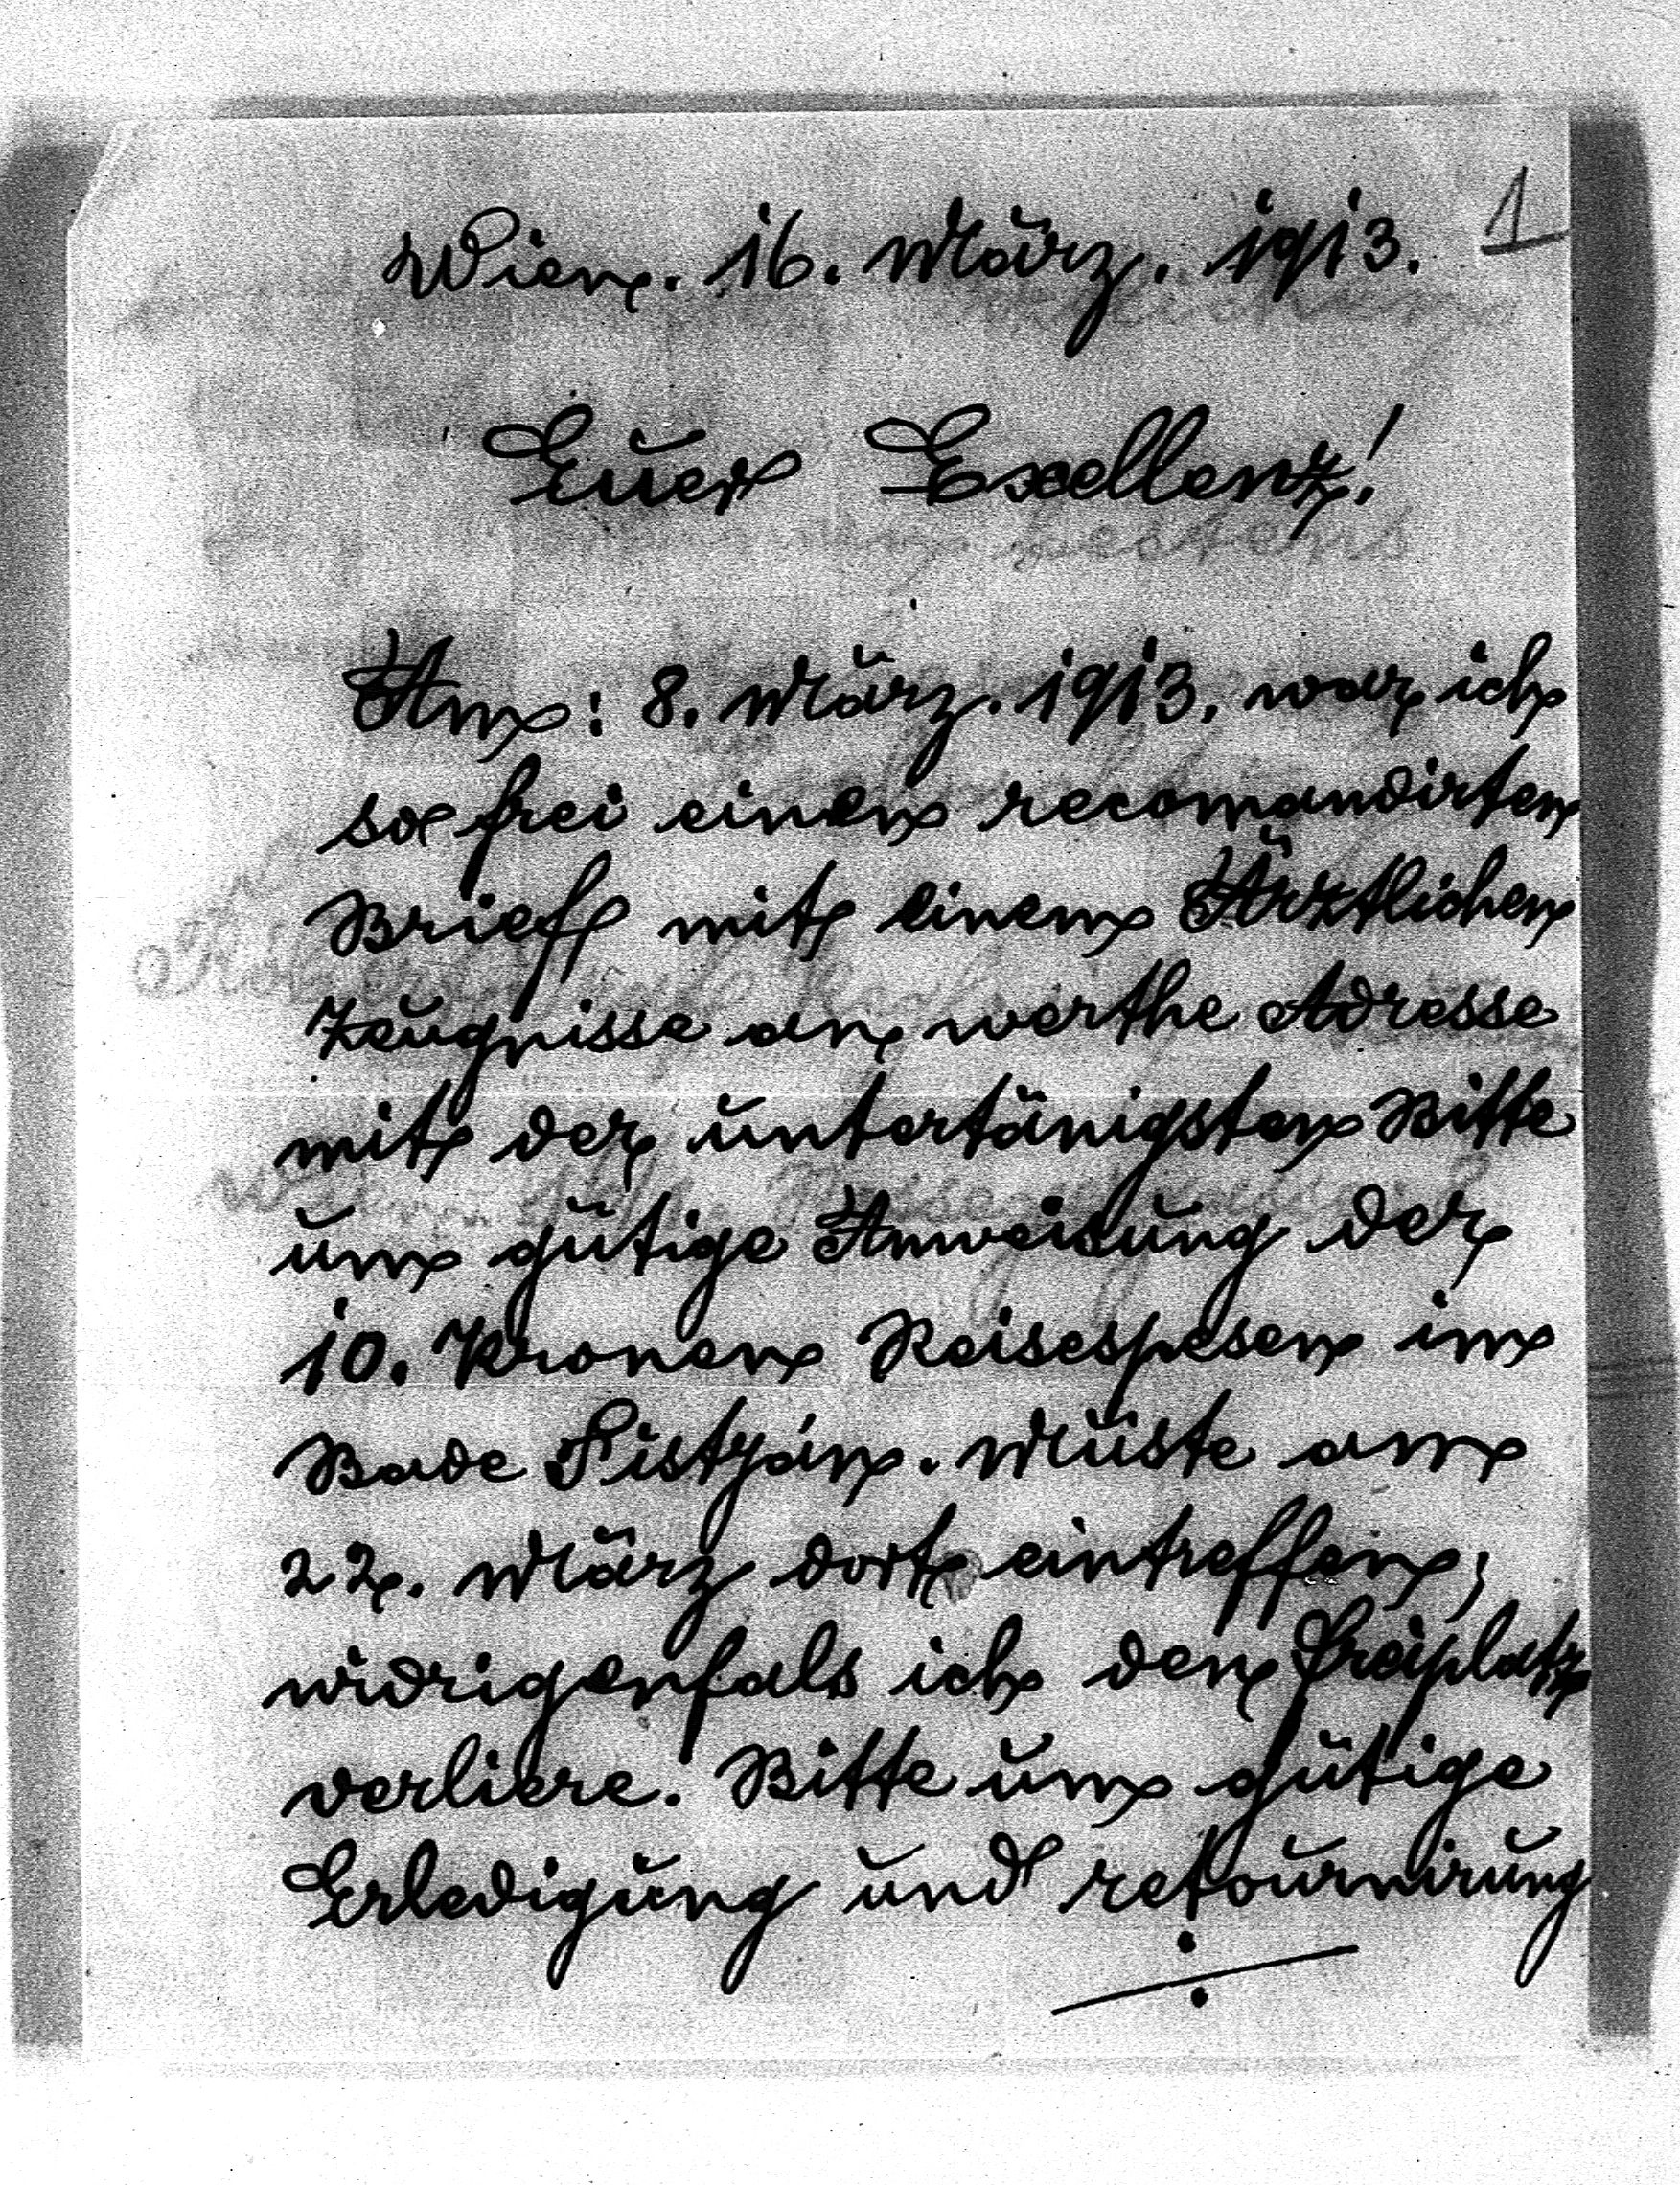 Wien. 16. März. 1913.
1
Euer Exellenz!
Am: 8. März. 1913. war ich
so frei einen recomandirten
Brief mit einem Ärztlichen
Zeugnisse an werthe Adresse
mit der untertänigsten Bitte
um gütige Anweisung der
10. Kronen Reisespesen im
Bade Pistyán. Müste am
22. März dort eintreffen,
widrigenfals ich den Freiplatz
verliere. Bitte um gütige
Erledigung und retournirung